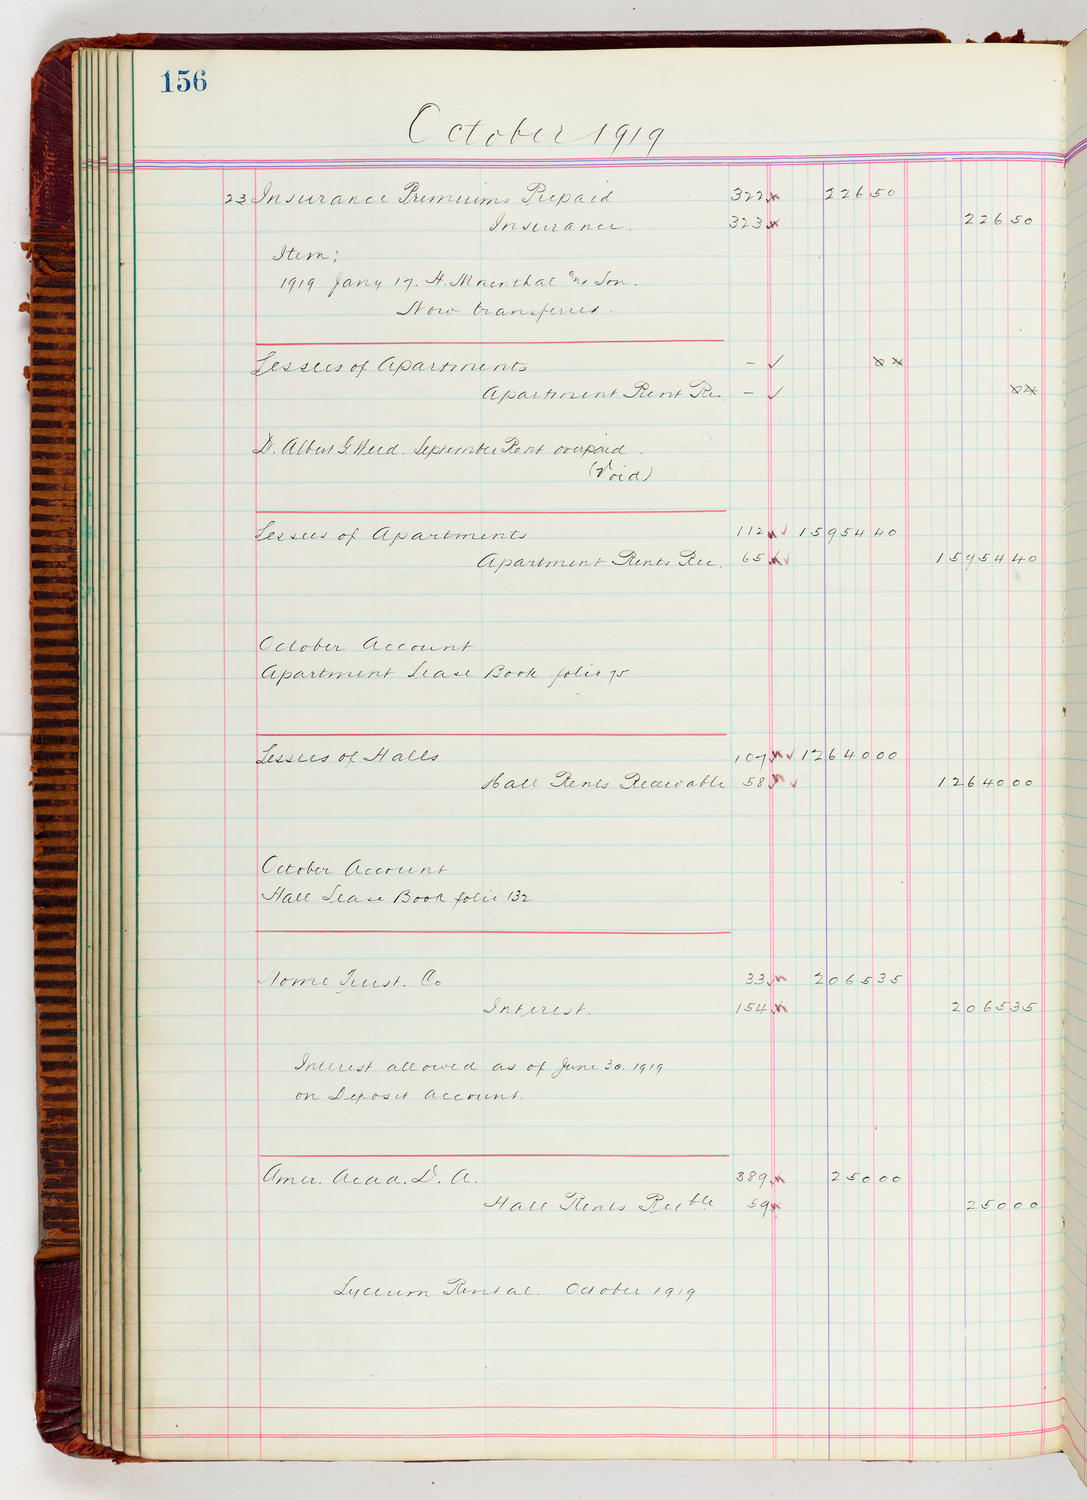 156
October 1919
23 Insurance Premiums Prepaid 322 226 50
Insurance. 323 226 50
Item;
1919 Jany 17. H. & Son.
Now transferred.
Lessees of Apartments - ✓
Apartment Rent Re. - ✓
Dr. Albert G. Weed. September Rent overpaid.
(Void)
Lessees of Apartments 112 15954 40
Apartment Rents Rec. 65 15954 40
October Account
Apartment Lease Book folio 75
Lessees of Halls 107 12640 00
Hall Rents Receivable 58 12640 00
October Account
Hall Lease Book folio 132
Home Trust. Co 33 2065 35
Interest. 154 2065 35
Interest allowed as of June 30. 1919
on Deposit Account.
Amer. Acad. D. A. 389 250 00
Hall Rents Recble 59 250 00
Lyceum Rental. October 1919